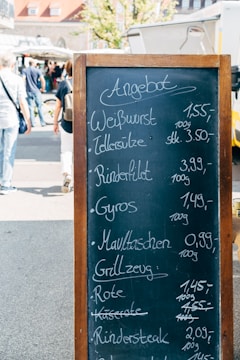 Angebot
Weißwurst 1,55,-
100g
Tellersülze Stk. 3.50,-
Rinderfilet 3,99,-
100g
• Gyros 1,49,-
100g
• Maultaschen 0,99,-
100g
Grillzeug:
• Rote 1,45,-
100g
• Käserote 1,55,-
100g
• Rindersteak 2,09,-
100g